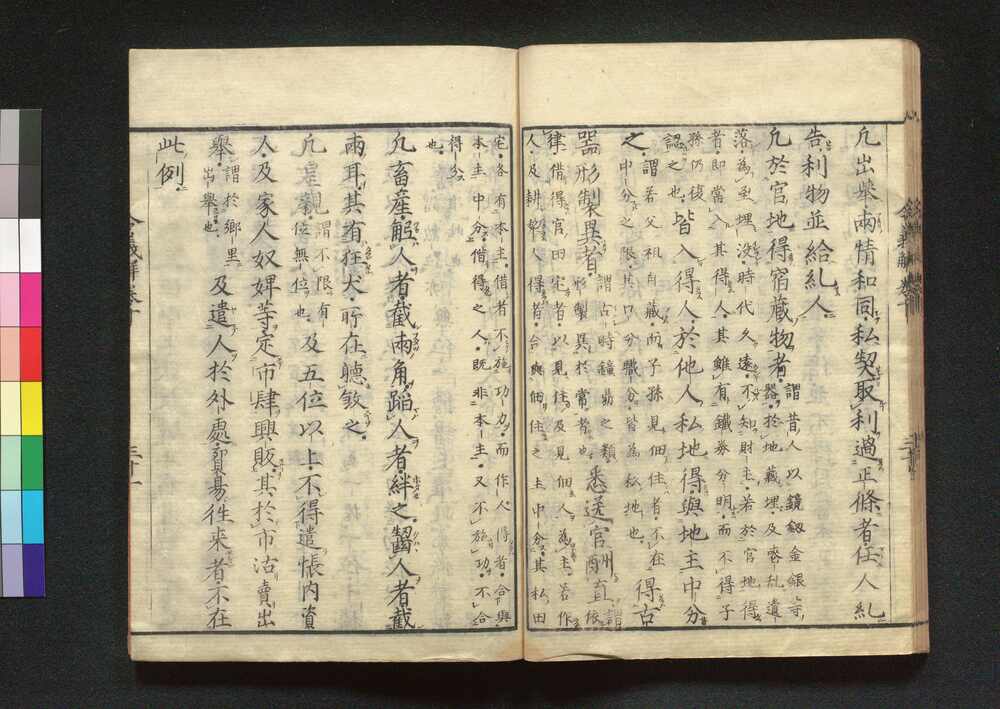 凢出挙兩情和同私契取利過正條者任人糺
告利物並給糺人
凢於官地得宿蔵物者謂昔人以鏡劔金銀等
器於地蔵埋及喪乱遺
落為土埋没時代久遠不知財主若於官地得
者即當入其得人其雖有鐵券分明而不得子
孫仍復
認之也皆入得人於他人私地得與地主中分
之謂若父祖自蔵而子孫見佃住者不在
中分之限其口分職分皆為私地也得古
器形製異者謂古時鐘鼎之類
形製異於常者也悉送官酬直謂依
律借得官田宅者以見住及見佃人為主若作
人及耕犂人得者合與佃住之主中分其私田
宅各有本主借者不施功力而作人得者合與
本主中分借得之人既非本主又不施功不合
得分
也
凢畜産觝人者截兩角蹈人者絆之齧人者截
兩耳其有狂犬所在聴殺之
凢皇親謂不限有
位無位也及五位以上不得遣帳内資
人及家人奴婢等定市肆興販其於市沽賣出
擧謂於郷里
出擧也及遣人於外處貿易往来者不在
此例
令義解巻十
三十一